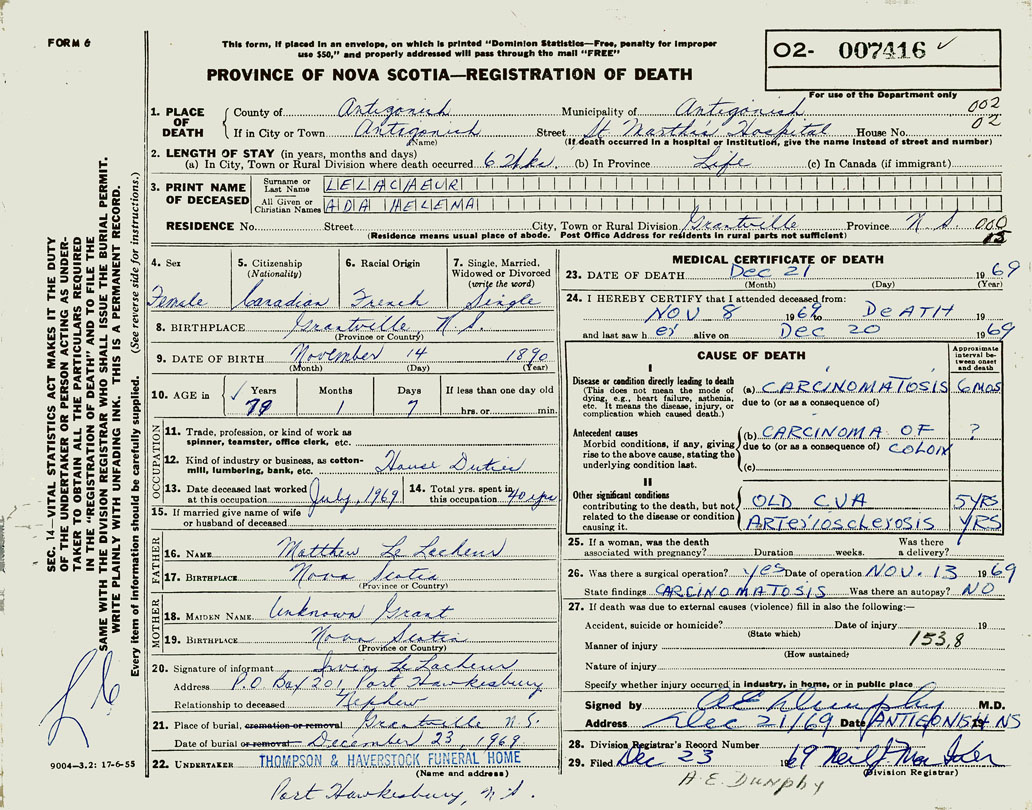 FORM 6
This form, if placed in an envelope, on which is printed "Dominion Statistics—Free, penalty for improper
use $50," and properly addressed will pass through the mail "FREE"
PROVINCE OF NOVA SCOTIA—REGISTRATION OF DEATH
O2- 007416
For use of the Department only
002
02
1. PLACE OF DEATH
County of Antigonish Municipality of Antigonish
If in City or Town Antigonish Street St Martha's Hospital House No.
(Name) (If death occurred in a hospital or institution, give the name instead of street and number)
2. LENGTH OF STAY (in years, months and days)
(a) In City, Town or Rural Division where death occurred 6 Wks. (b) In Province Life (c) In Canada (if immigrant)
3. PRINT NAME OF DECEASED
Surname or Last Name LELACHEUR
All Given or Christian Names ADA HELENA
RESIDENCE No. Street City, Town or Rural Division Grantville Province N.S. 000
(Residence means usual place of abode. Post Office Address for residents in rural parts not sufficient) 15
4. Sex Female
5. Citizenship (Nationality) Canadian
6. Racial Origin French
7. Single, Married, Widowed or Divorced (write the word) Single
8. BIRTHPLACE Grantville, N.S.
(Province or Country)
9. DATE OF BIRTH November 14 1890
(Month) (Day) (Year)
10. AGE in Years 79 Months 1 Days 7 If less than one day old hrs. or min.
OCCUPATION
11. Trade, profession, or kind of work as
spinner, teamster, office clerk, etc.
12. Kind of industry or business, as cotton-
mill, lumbering, bank, etc. House Duties
13. Date deceased last worked at this occupation July, 1969
14. Total yrs. spent in this occupation 40 yrs
15. If married give name of wife
or husband of deceased
FATHER
16. NAME Matthew Le Lacheur
17. BIRTHPLACE Nova Scotia
(Province or Country)
MOTHER
18. MAIDEN NAME Unknown Grant
19. BIRTHPLACE Nova Scotia
(Province or Country)
20. Signature of informant Irvin Le Lacheur
Address P.O Box 201, Port Hawkesbury
Relationship to deceased Nephew
21. Place of burial, cremation or removal Grantville N.S.
Date of burial or removal December 23 1969
22. UNDERTAKER THOMPSON & HAVERSTOCK FUNERAL HOME
(Name and address)
Port Hawkesbury, N.S.
MEDICAL CERTIFICATE OF DEATH
23. DATE OF DEATH Dec 21 1969
(Month) (Day) (Year)
24. I HEREBY CERTIFY that I attended deceased from:
NOV 8 1969 to DEATH 19
and last saw her alive on Dec 20 1969
CAUSE OF DEATH
Approximate interval between onset and death
I
Disease or condition directly leading to death
(This does not mean the mode of dying, e.g., heart failure, asthenia, etc. It means the disease, injury, or complication which caused death.)
(a) CARCINOMATOSIS 6 mos
due to (or as a consequence of)
Antecedent causes
Morbid conditions, if any, giving rise to the above cause, stating the underlying condition last.
(b) CARCINOMA OF ?
due to (or as a consequence of) COLON
(c)
II
Other significant conditions
contributing to the death, but not related to the disease or condition causing it.
OLD CVA 5 YRS
ARTERIOSCLEROSIS YRS
25. If a woman, was the death associated with pregnancy? Duration weeks. Was there a delivery?
26. Was there a surgical operation? yes Date of operation NOV. 13 1969
State findings CARCINOMATOSIS Was there an autopsy? NO
27. If death was due to external causes (violence) fill in also the following:—
Accident, suicide or homicide? Date of injury 19
(State which)
Manner of injury 153,8
(How sustained)
Nature of injury
Specify whether injury occurred in industry, in home, or in public place
Signed by A E Dunphy M.D.
Address Dec 21/69 Date ANTIGONISH NS 19
28. Division Registrar's Record Number
29. Filed Dec 23 1969 Neil J.
(Division Registrar)
A. E. Dunphy
SEC. 14—VITAL STATISTICS ACT MAKES IT THE DUTY
OF THE UNDERTAKER OR PERSON ACTING AS UNDER-
TAKER TO OBTAIN ALL THE PARTICULARS REQUIRED
IN THE "REGISTRATION OF DEATH" AND TO FILE THE
SAME WITH THE DIVISION REGISTRAR WHO SHALL ISSUE THE BURIAL PERMIT.
WRITE PLAINLY WITH UNFADING INK. THIS IS A PERMANENT RECORD.
Every item of information should be carefully supplied. (See reverse side for instructions.)
9004—3.2: 17-6-55